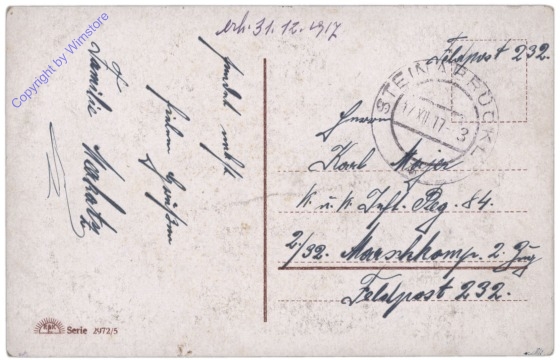 Copyright by Wimstore
erh. 31.12.1917
sendet nebst
Grüßen
Familie
Feldpost 232.
STEINBRÜCK
17 XII 17-3
Herrn
Karl Mayer
K. u. K. Inft. Reg. 84.
2/32. Marschkomp. 2. Zug
Feldpost 232.
Serie 2972/5